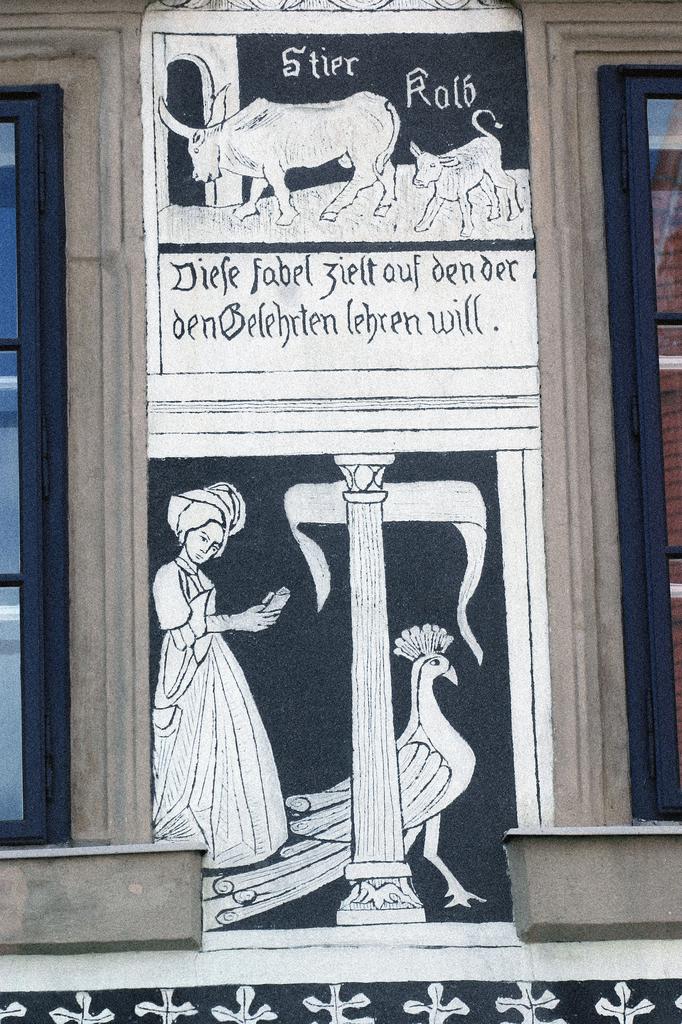 Stier
Kalb
Diese fabel zielt auf den der
den Gelehrten lehren will.